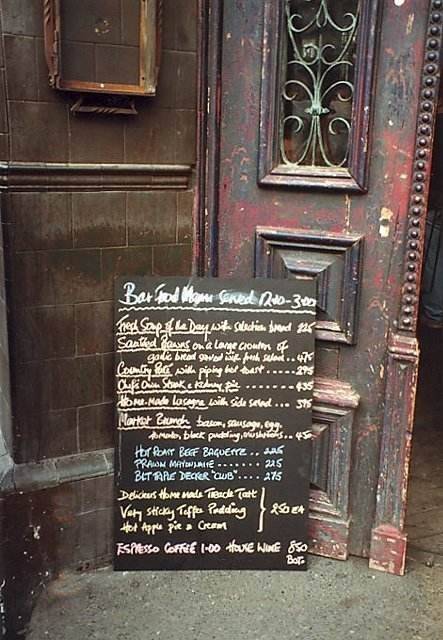 Bar Food Menu served 12.00-3.00
Fresh Soup of the Day with selection bread 2.25
Sauteed Prawns on a large crouton of
garlic bread served with fresh salad .. 4.75
Country Pate with piping hot toast ..... 2.95
Chefs Own Steak & Kidney pie ....... 4.35
Home-made Lasagne with side salad .... 3.95
Market Brunch bacon, sausage, egg,
tomato, black pudding, mushrooms .. 4.50
HOT ROAST BEEF BAGUETTE .. 2.25
PRAWN MAYONNAISE ....... 2.25
BLT TRIPLE DECKER "CLUB" .... 2.75
Delicious Home made Treacle Tart
Very Sticky Toffee Pudding } 2.50 EA
Hot Apple Pie & Cream
ESPRESSO COFFEE 1.00 HOUSE WINE 8.50
BOT.